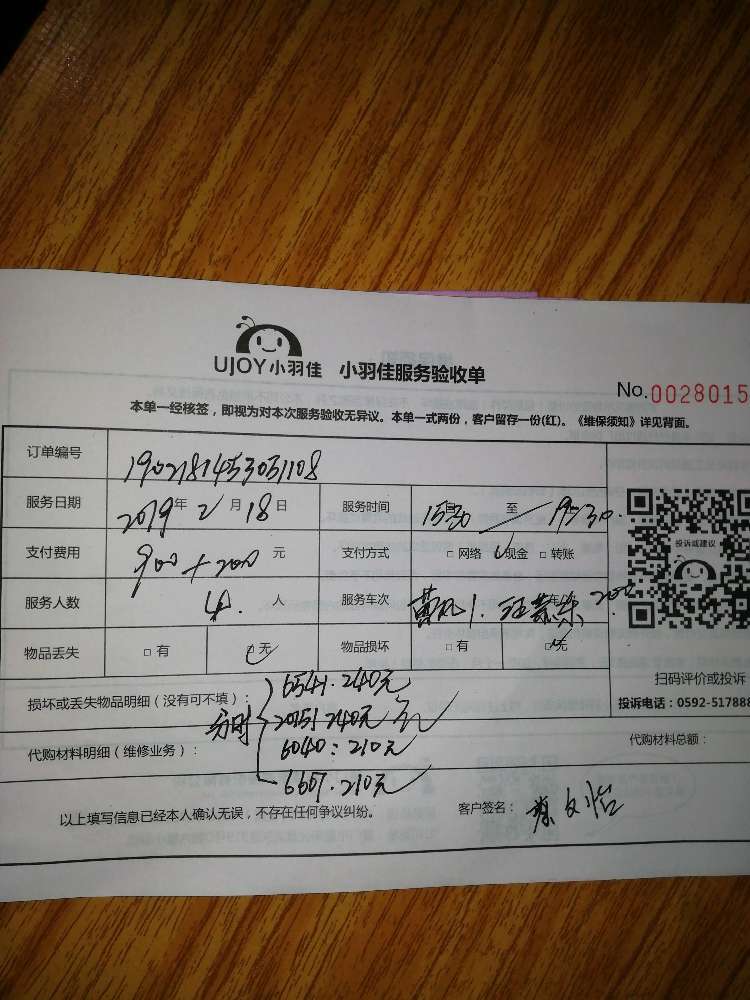 UJOY小羽佳 小羽佳服务验收单
No.0028015
本单一经核签，即视为对本次服务验收无异议。本单一式两份，客户留存一份(红)。《维保须知》详见背面。
订单编号 1902181453051108
服务日期 2019年 2 月 18 日 服务时间 15:30 至 19:30
支付费用 900+200 元 支付方式 □ 网络 现金 □ 转账
投诉或建议
服务人数 4. 人 服务车次 200
物品丢失 □ 有 □ 无 物品损坏 □ 有 □ 无
扫码评价或投诉
损坏或丢失物品明细（没有可不填）： 6541.240元
投诉电话：0592-517888
分时 20151240元
代购材料明细（维修业务）： 6040：210元 代购材料总额：
6607.210元
以上填写信息已经本人确认无误，不存在任何争议纠纷。 客户签名：